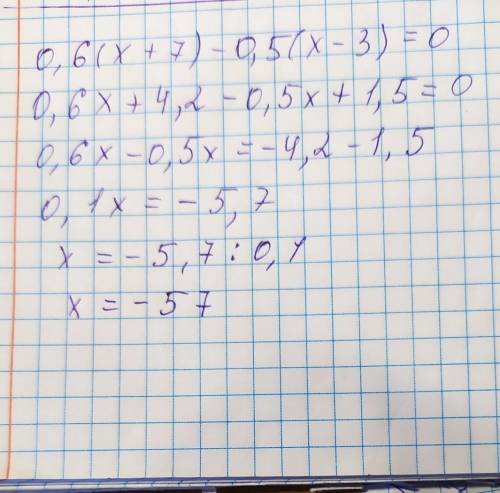 0,6(x + 7) - 0,5(x - 3) = 0
0,6x + 4,2 - 0,5x + 1,5 = 0
0,6x - 0,5x = -4,2 - 1,5
0,1x = -5,7
x = -5,7 : 0,1
x = -57